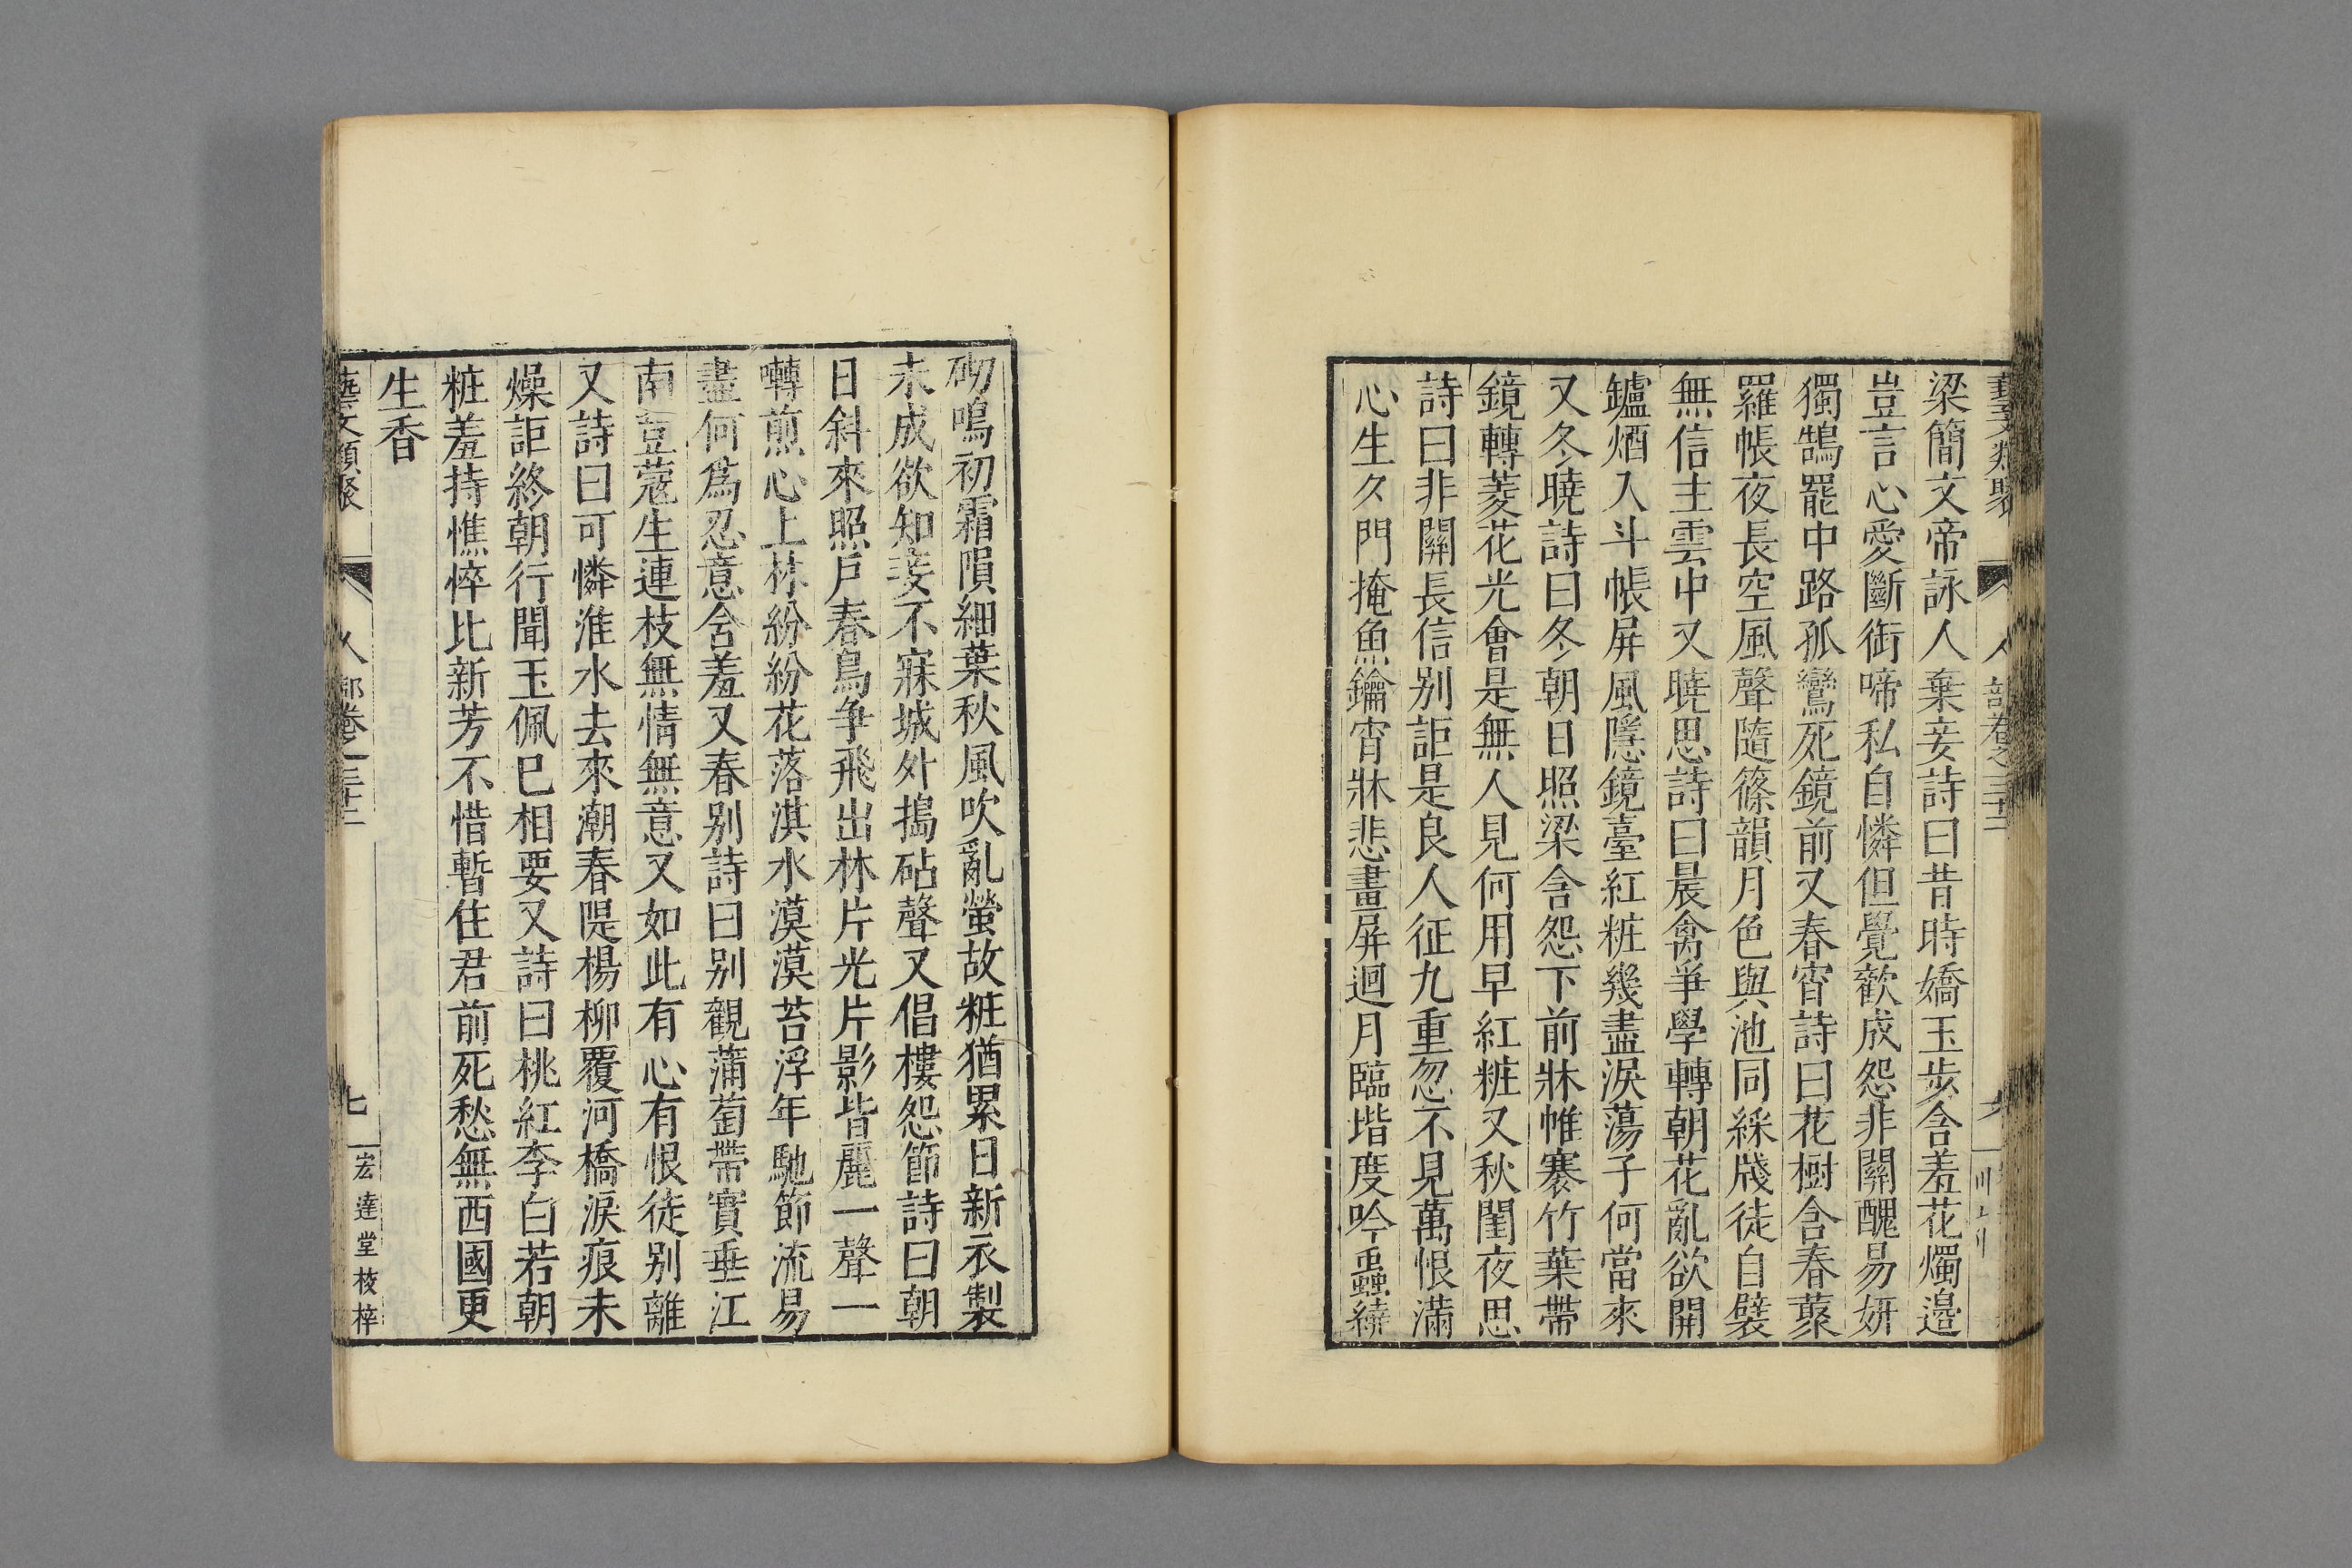 藝文類聚 人部卷之三十二
梁簡文帝詠人棄妾詩曰昔時嬌玉步含羞花燭邉
豈言心愛斷銜啼私自憐但覺歡成怨非關醜易妍
獨鵠罷中路孤鸞死鏡前又春宵詩曰花樹含春藂
羅帳夜長空風聲隨篠韻月色與池同綵牋徒自襞
無信主雲中又曉思詩曰晨禽爭學轉朝花亂欲開
鑪煙入斗帳屏風隱鏡臺紅粧幾盡淚蕩子何當來
又冬曉詩曰冬朝日照梁含怨下前牀帷褰竹葉帶
鏡轉菱花光會是無人見何用早紅粧又秋閨夜思
詩曰非關長信别詎是良人征九重忽不見萬恨滿
心生夕門掩魚鑰宵牀悲畫屏迴月臨堦度吟蟲繞
砌鳴初霜隕細葉秋風吹亂螢故粧猶累日新衣製
未成欲知妾不寐城外搗砧聲又倡樓怨節詩曰朝
日斜來照戶春鳥争飛出林片光片影皆麗一聲一
囀煎心上林紛紛花落淇水漠漠苔浮年馳節流易
盡何爲忍意含羞又春别詩曰别觀蒲萄帶實垂江
南荳蔻生連枝無情無意又如此有心有恨徒别離
又詩曰可憐淮水去來潮春隄楊柳覆河橋淚痕未
燥詎終朝行聞玉佩已相要又詩曰桃紅李白若朝
粧羞持憔悴比新芳不惜暫住君前死愁無西國更
生香
藝文類聚 人部卷之三十二 七 宏達堂校梓